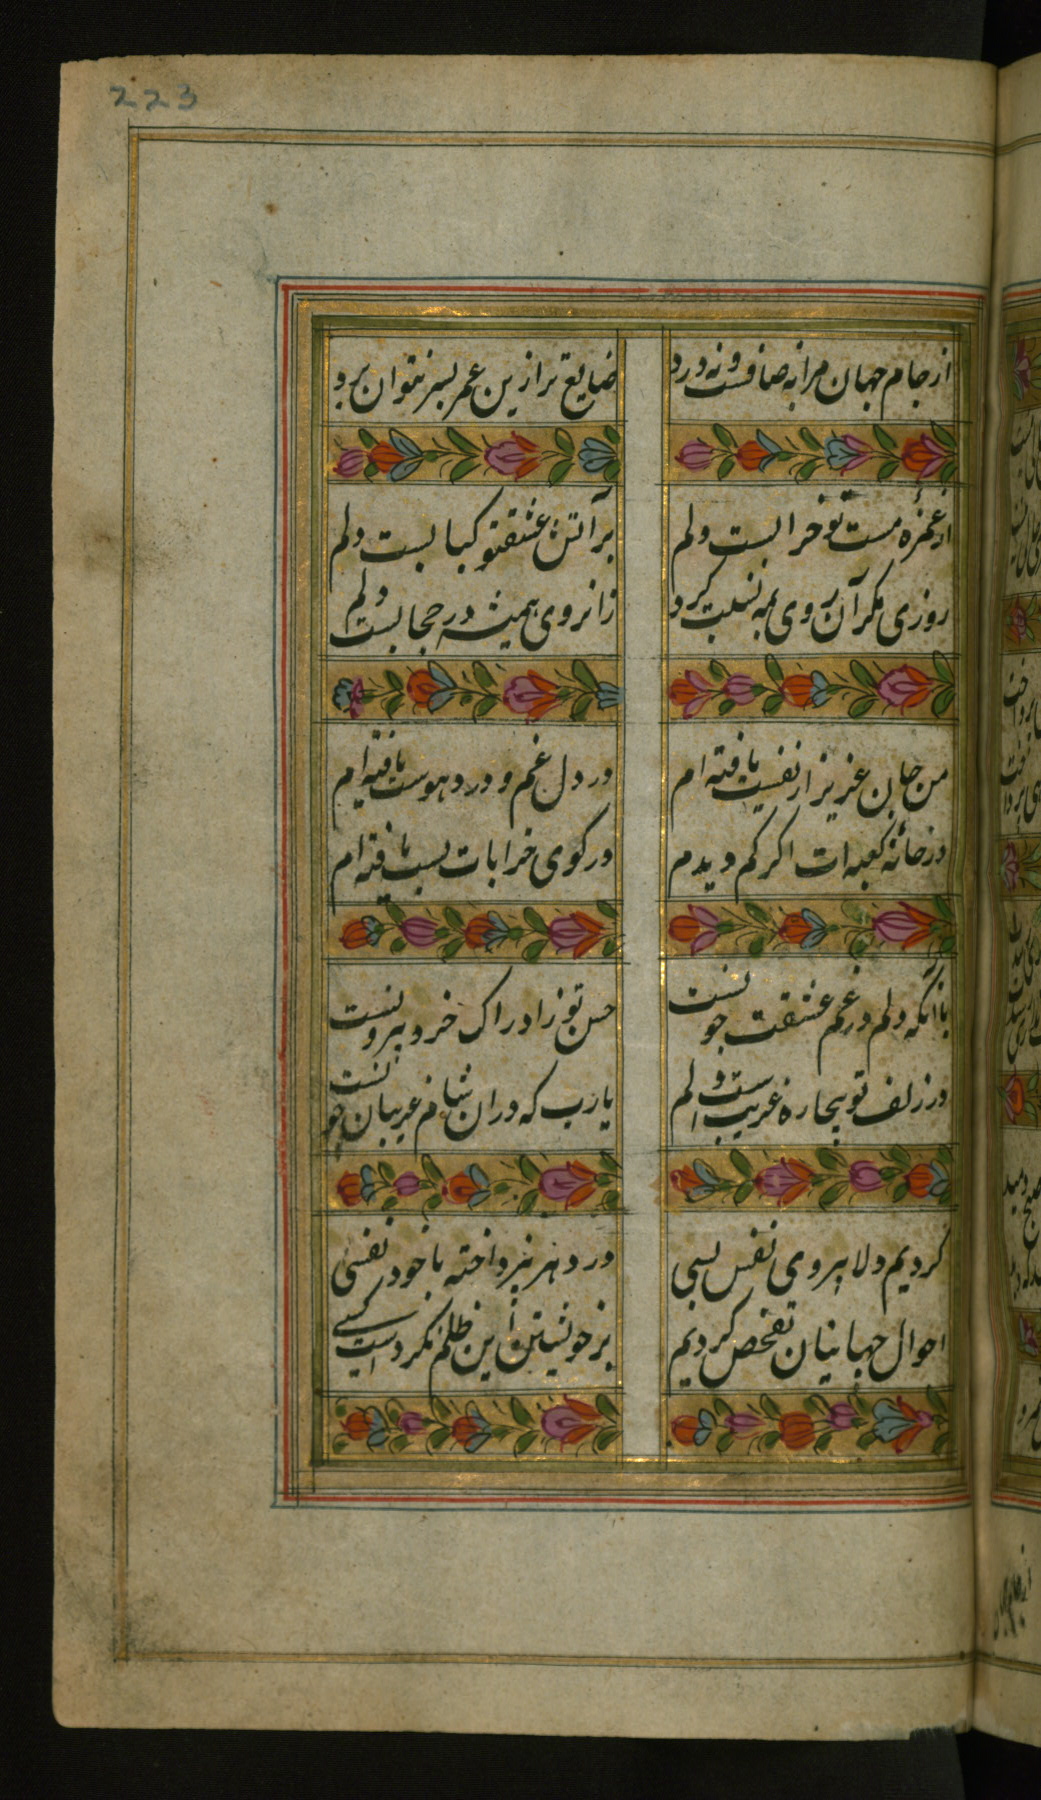 223
از جام جهان مرا نه صافست و نه درد
ضایع تر ازین عمر بسر نتوان برد
از غمزهٔ مست تو خرابست دلم
بر آتش عشقتو کبابست دلم
روزی مگر آن روی بمه نسبت کرد
زانروی همیشه در حجابست دلم
من جان عزیز از نفست یافته ام
در دل غم و درد و هوست یافته ام
در خانهٔ کعبه ات اگر کم دیدم
در کوی خرابات بست یافته ام
با آنکه دلم در غم عشقت چونست
حسن تو ز ادراک خرد بیرونست
در زلف تو بیچاره غریبست و دلم
یارب که در ان شام غریبان چونست
کردیم دلا پیروی نفس بسی
در دهر نپرداخته با خود نفسی
احوال جهانیان تفحص کردیم
بر خویشتن این ظلم نکردست کسی